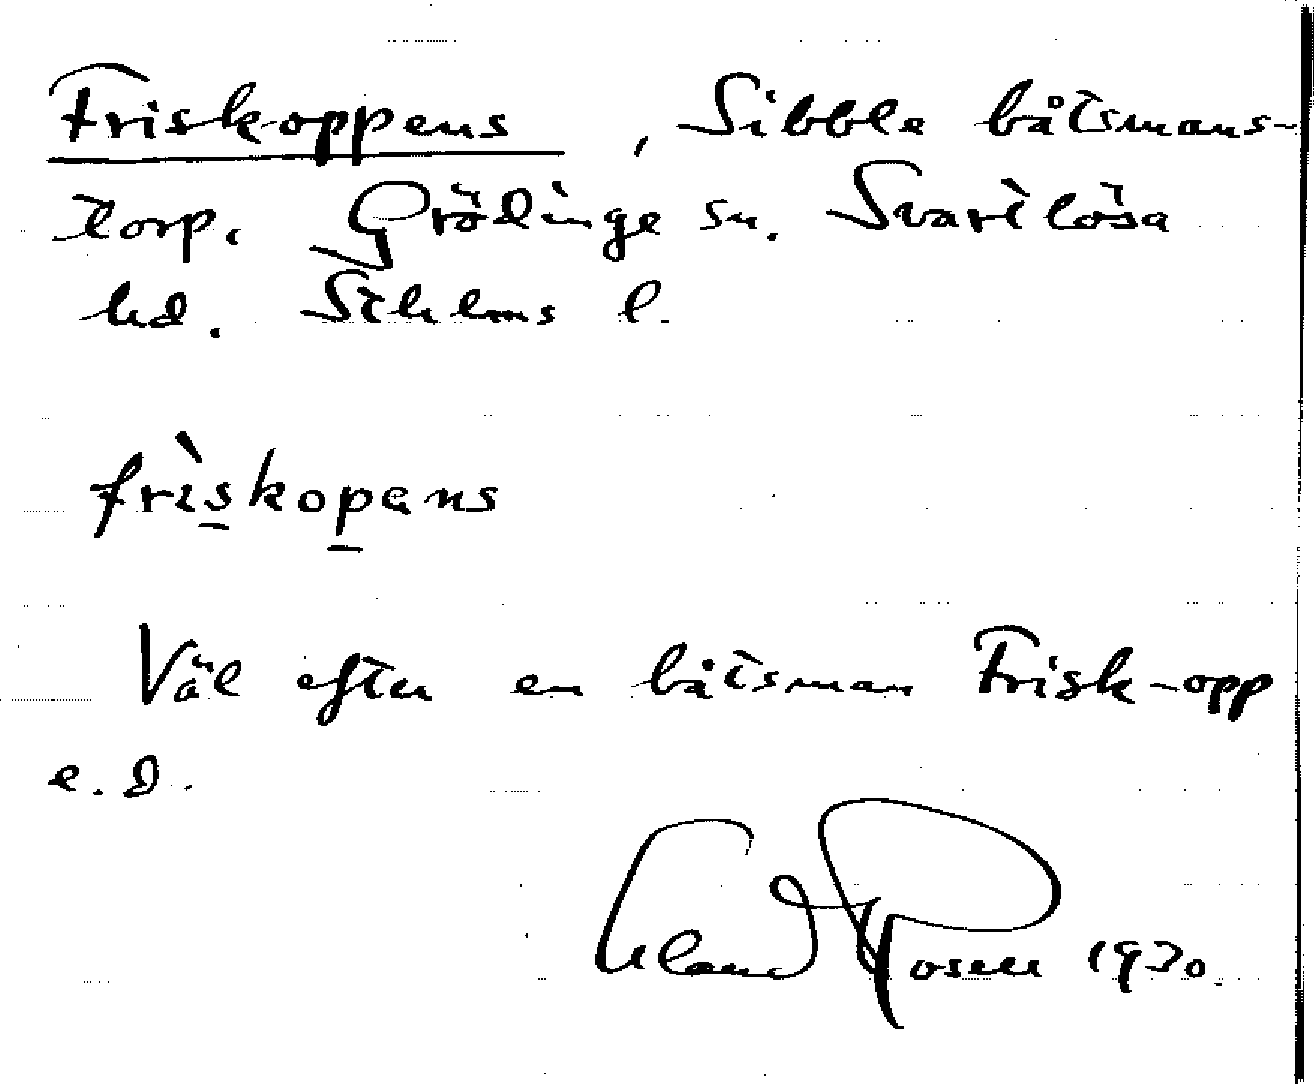 Friskoppens, Sibble båtsmans-
torp. Grödinge sn. Svartlösa
hd. Sthlms l.
frìskopens
Väl efter en båtsman Frisk-opp
e.d.
Rosell 1930.